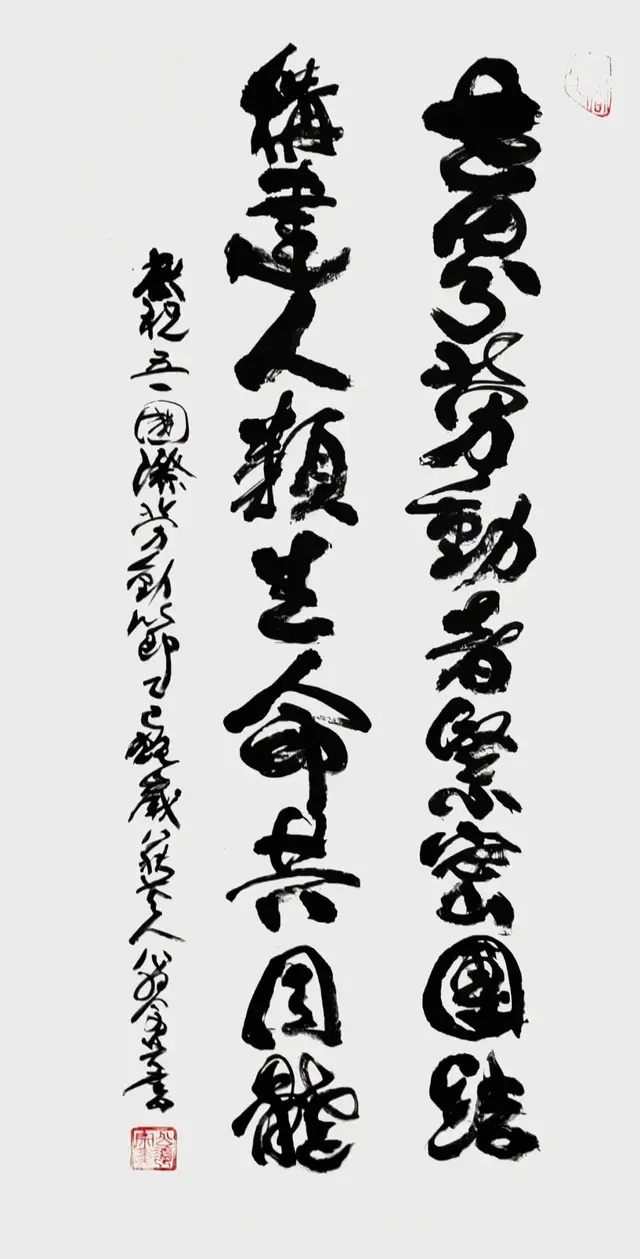 世界勞動者緊密團結
構建人類生命共同體
祝五一國際勞動節乙巳歲人書